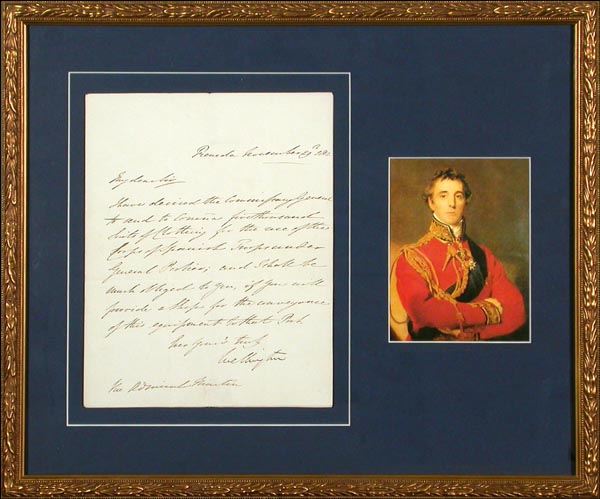 My dear Sir
I have desired the Commissary General
to send to Coruña five thousand
suits of Clothing for the use of the
Corps of Spanish Troops under
General ; and I shall be
much obliged to you, if you will
provide a Ship for the conveyance
of this equipment to that Port.
Wellington
Vice Admiral